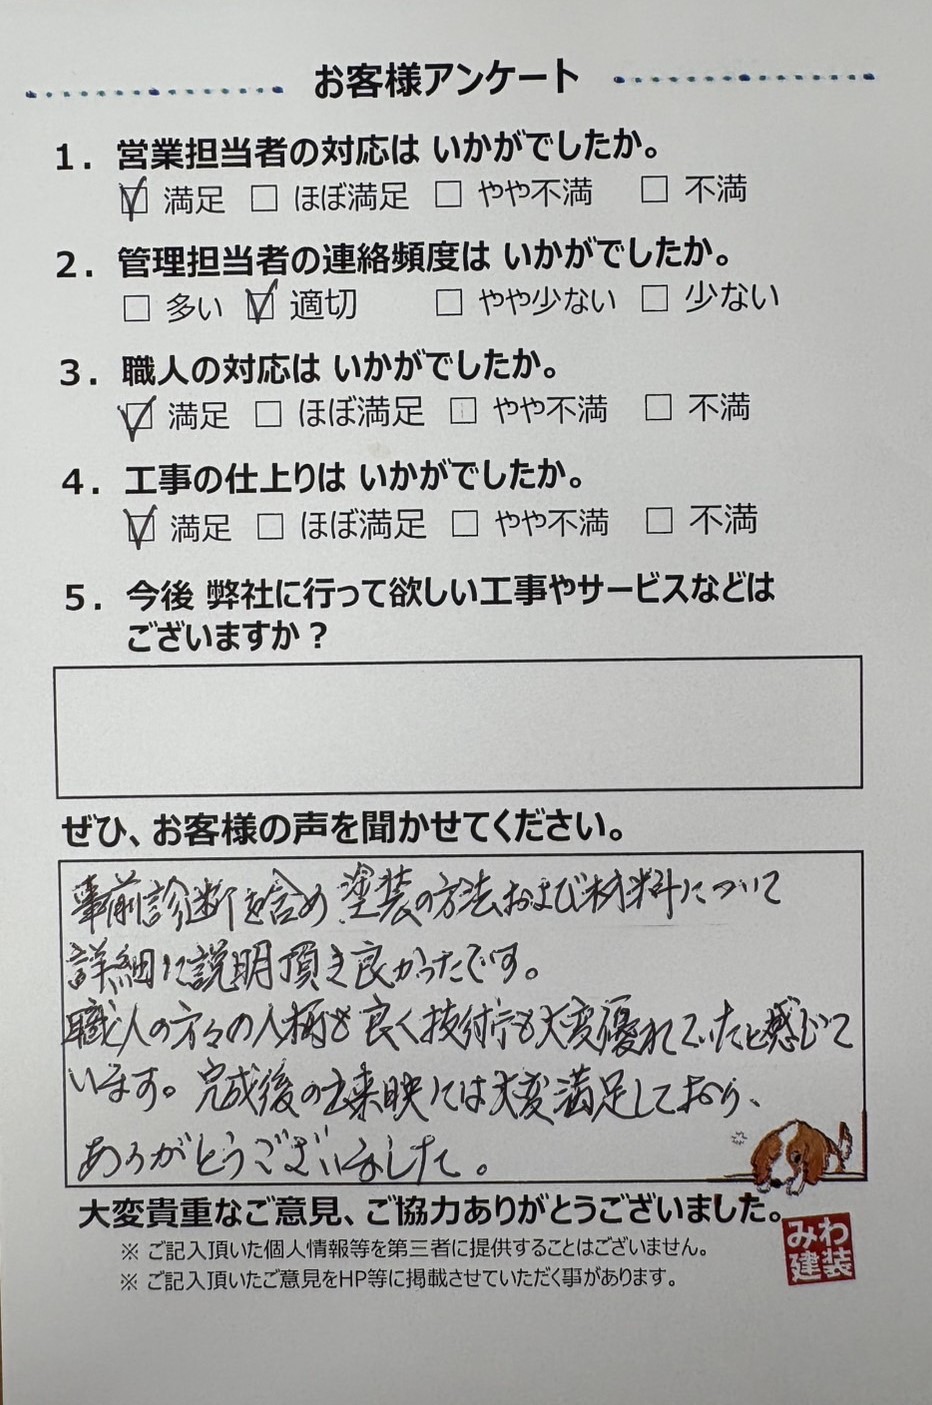 お客様アンケート
1. 営業担当者の対応は いかがでしたか。
☑ 満足 □ ほぼ満足 □ やや不満 □ 不満
2. 管理担当者の連絡頻度は いかがでしたか。
□ 多い ☑ 適切 □ やや少ない □ 少ない
3. 職人の対応は いかがでしたか。
☑ 満足 □ ほぼ満足 □ やや不満 □ 不満
4. 工事の仕上りは いかがでしたか。
☑ 満足 □ ほぼ満足 □ やや不満 □ 不満
5. 今後 弊社に行って欲しい工事やサービスなどは
ございますか？
ぜひ、お客様の声を聞かせてください。
事前診断を含め塗装の方法および材料について
詳細に説明頂き良かったです。
職人の方々の人柄も良く技術も大変優れていたと感じて
います。完成後の出来映には大変満足しており、
ありがとうございました。
大変貴重なご意見、ご協力ありがとうございました。
※ ご記入頂いた個人情報等を第三者に提供することはございません。
※ ご記入頂いたご意見をHP等に掲載させていただく事があります。
みわ
建装